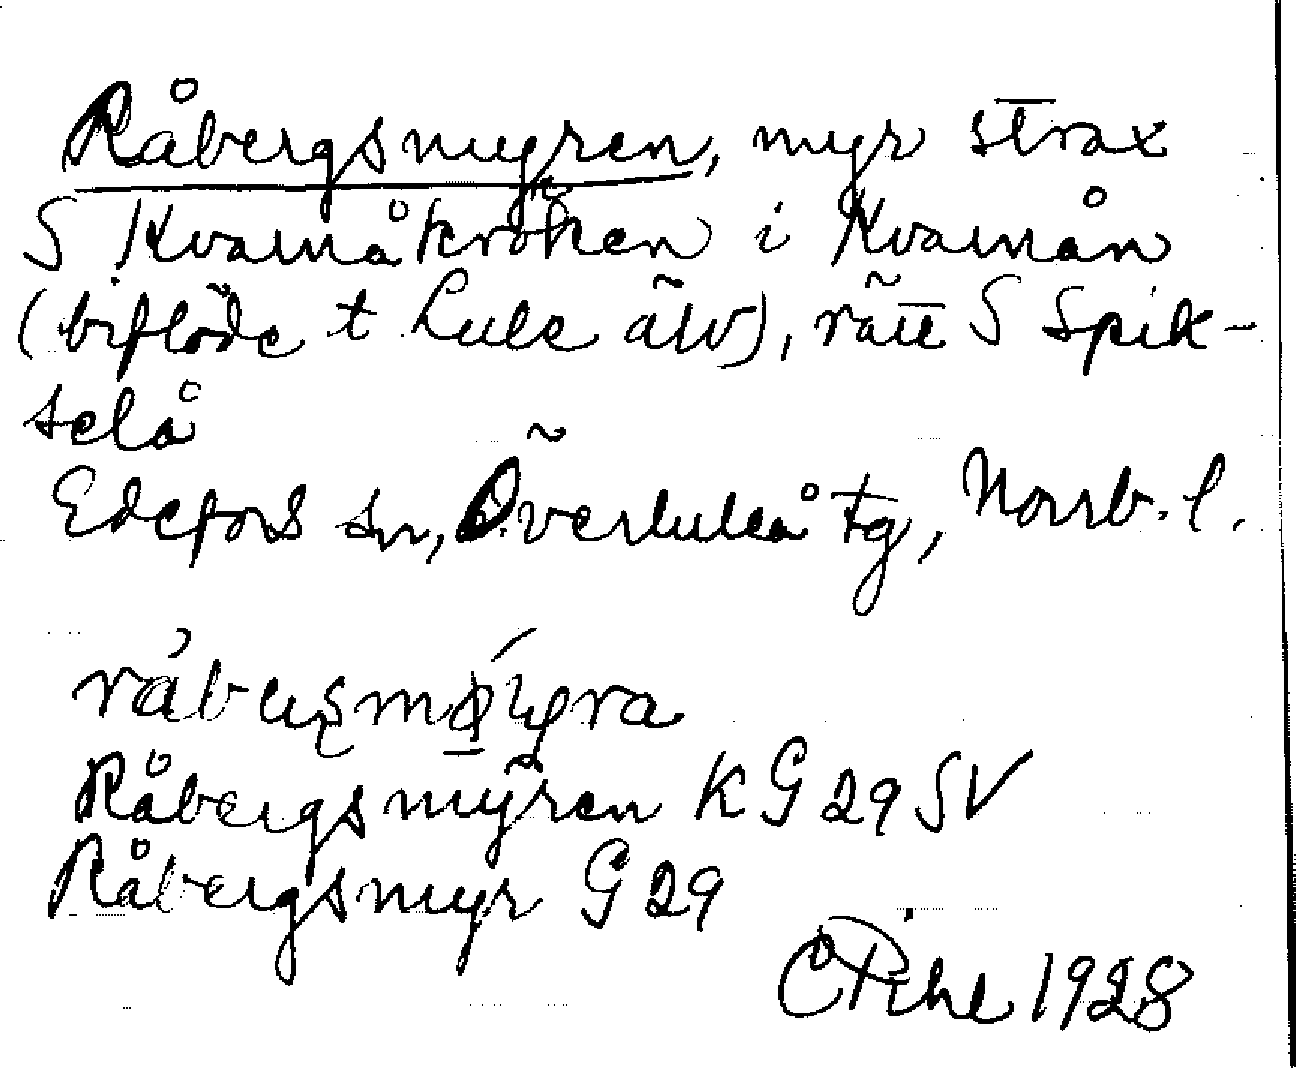 Råbergsmyren, myr strax
S Kvarnåkröken i Kvarnån
(biflöde t Lule älv), rätt S Spik-
selå
Edefors sn, Överluleå tg, Norrb. l.
Råbergsmyren K G 29 SV
Råbergsmyr G 29
C Pihl 1928